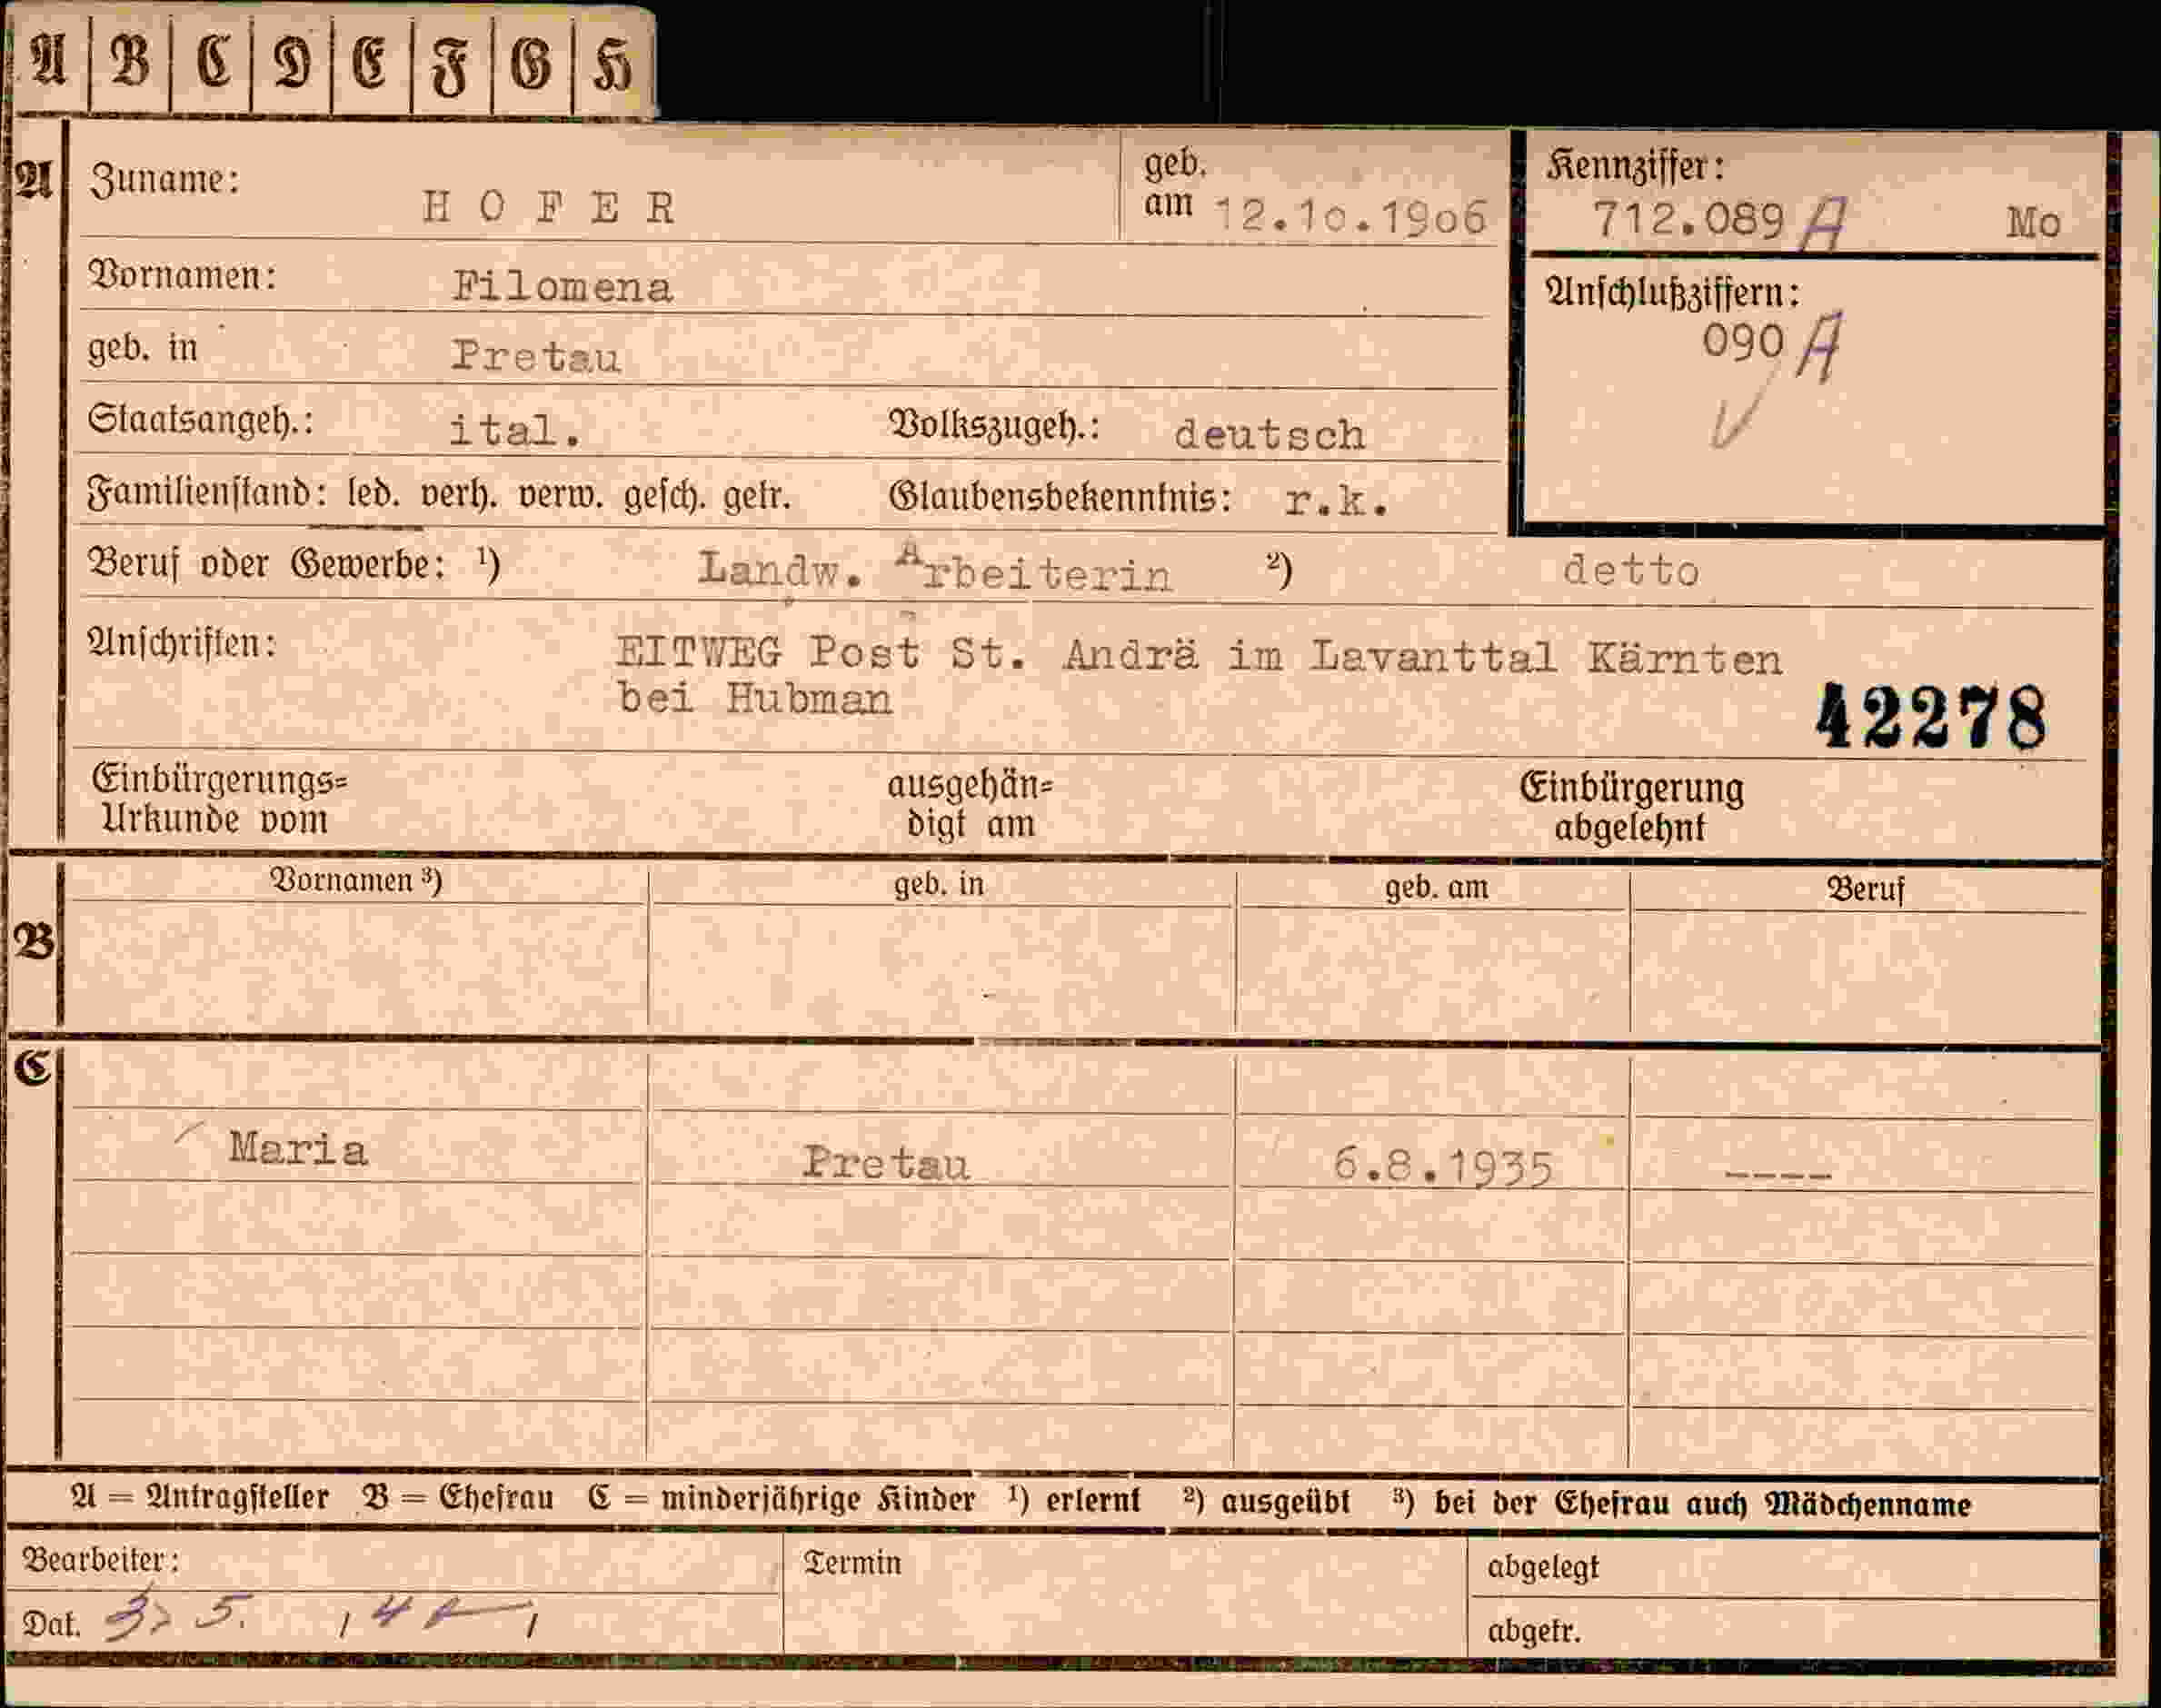 A B C D E F G H
A Zuname: HOFER geb. am 12.10.1906 Kennziffer: 712.089 A Mo
Vornamen: Filomena Anschlußziffern: 090 A
geb. in Pretau
Staatsangeh.: ital. Volkszugeh.: deutsch
Familienstand: led. verh. verw. gesch. getr. Glaubensbekenntnis: r.k.
Beruf oder Gewerbe: ¹) Landw. Arbeiterin ²) detto
Anschriften: EITWEG Post St. Andrä im Lavanttal Kärnten
bei Hubman
42278
Einbürgerungs= ausgehän= Einbürgerung
Urkunde vom digt am abgelehnt
Vornamen ³) geb. in geb. am Beruf
B
C
Maria Pretau 6.8.1935 ----
A = Antragsteller B = Ehefrau C = minderjährige Kinder ¹) erlernt ²) ausgeübt ³) bei der Ehefrau auch Mädchenname
Bearbeiter: Termin abgelegt
Dat. 5. abgetr.